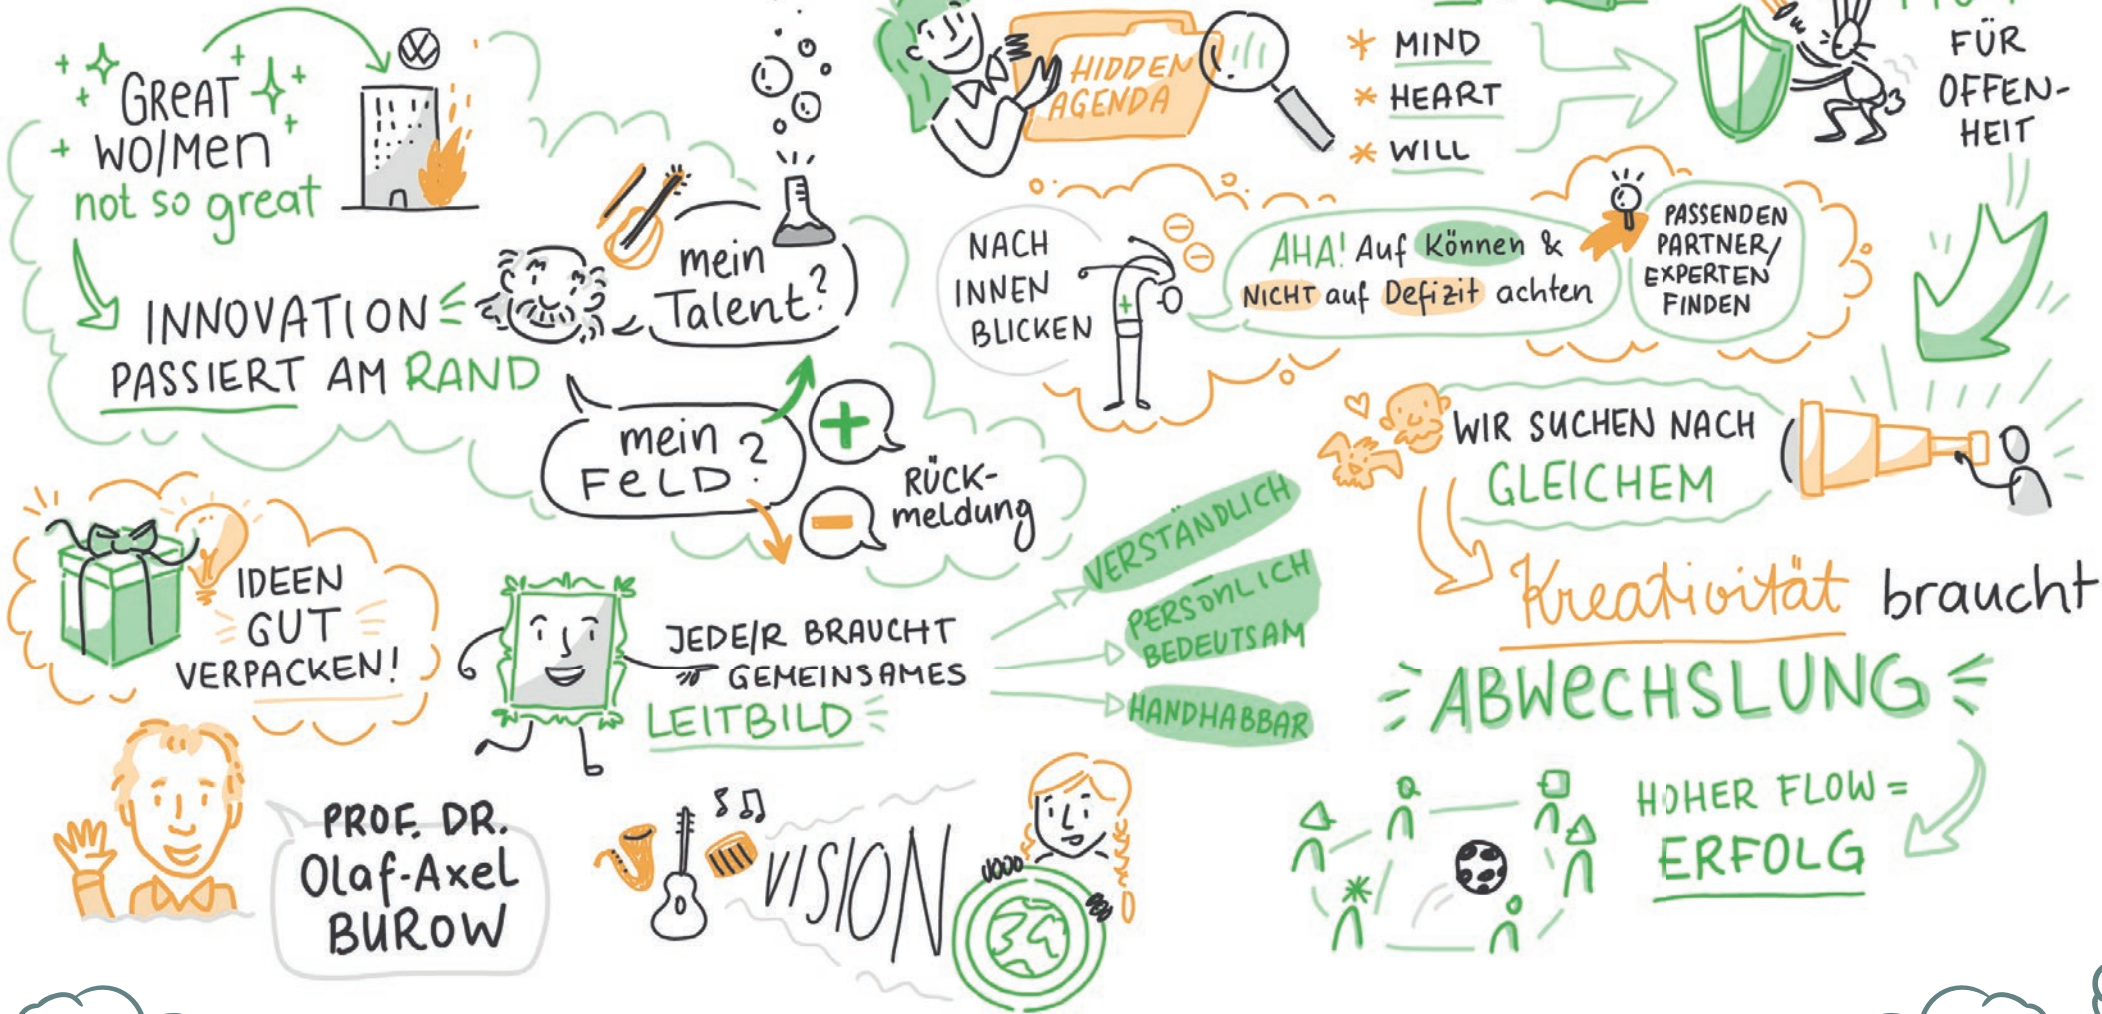 GREAT
WO/MEN
not so great
INNOVATION
PASSIERT AM RAND
VW
mein
Talent?
mein
FELD?
+
-
RÜCK-
meldung
HIDDEN
AGENDA
* MIND
* HEART
* WILL
FÜR
OFFEN-
HEIT
NACH
INNEN
BLICKEN
AHA! Auf Können &
NICHT auf Defizit achten
PASSENDEN
PARTNER/
EXPERTEN
FINDEN
WIR SUCHEN NACH
GLEICHEM
Kreativität braucht
ABWECHSLUNG
HOHER FLOW =
ERFOLG
IDEEN
GUT
VERPACKEN!
JEDE/R BRAUCHT
GEMEINSAMES
LEITBILD
VERSTÄNDLICH
PERSÖNLICH
BEDEUTSAM
HANDHABBAR
PROF. DR.
Olaf-Axel
BUROW
VISION